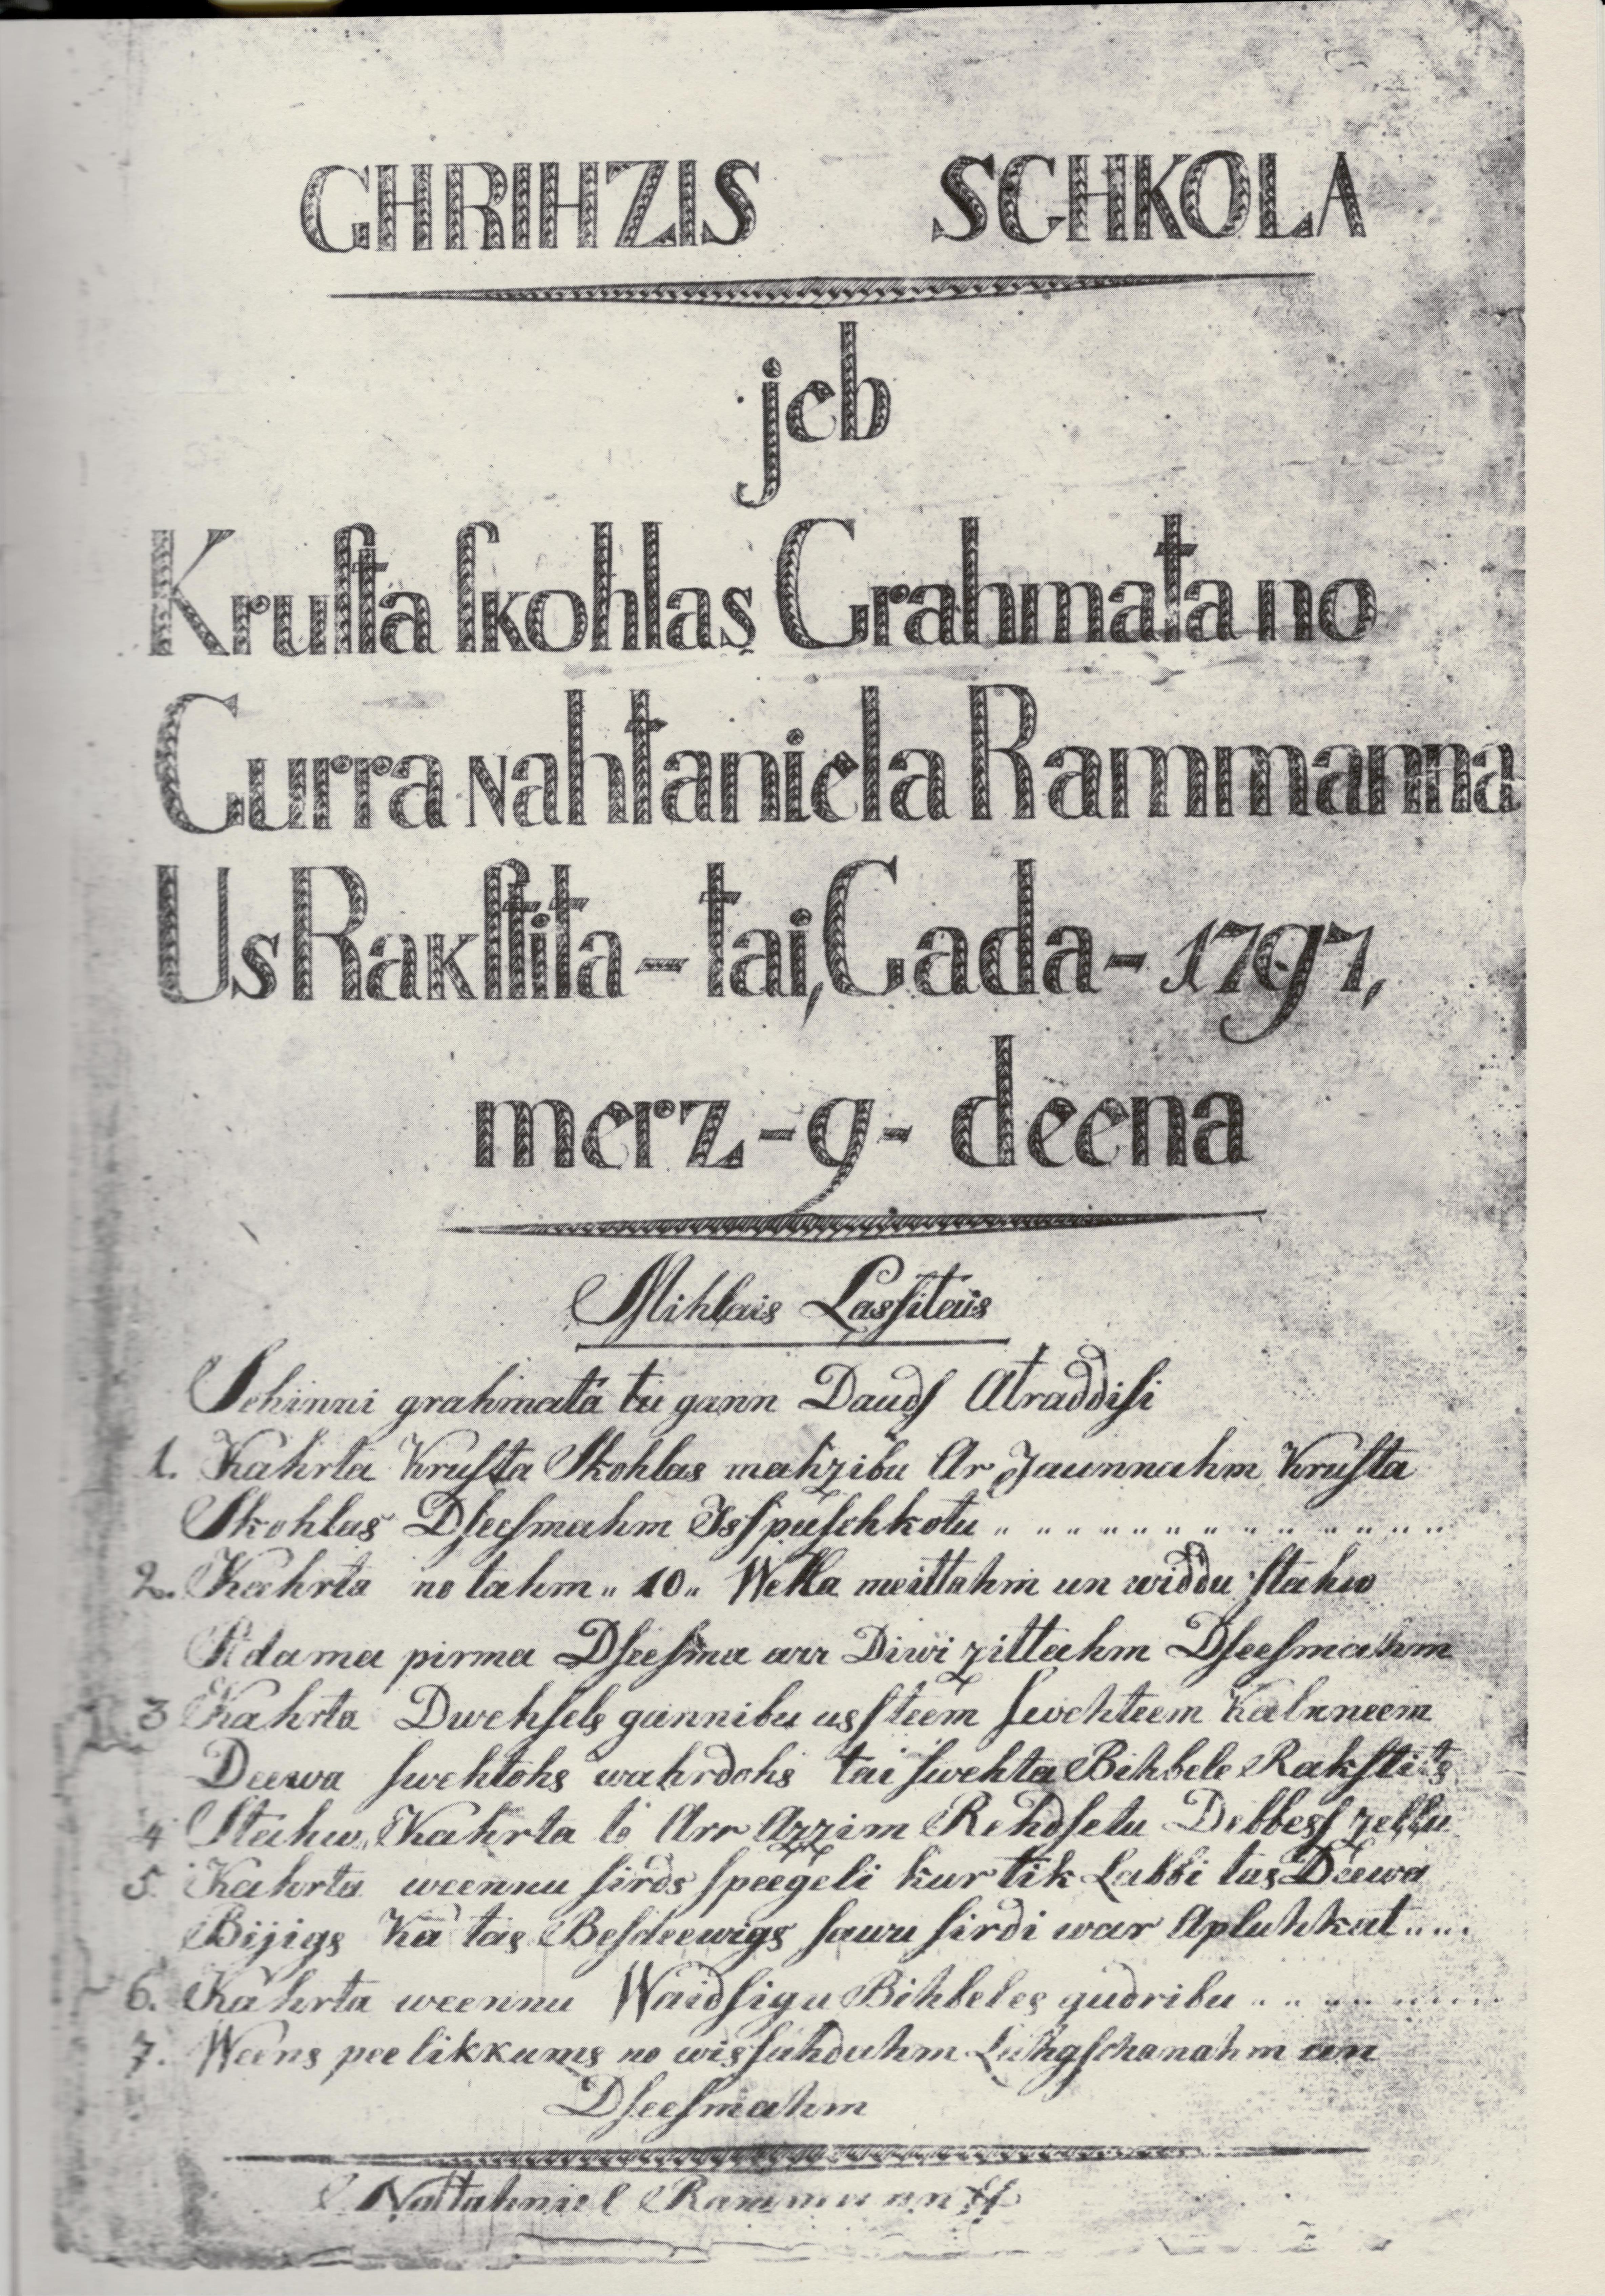 GHRIHZIS SCHKOLA
jeb
Kruſta ſkohlas Grahmata no
Gurra Nahtaniela Rammanna
Us Rakſtita - tai, Gada - 1797,
merz - 9 - deena
Mihlais Lasſitais
Schinni grahmatā tu gann Daudſ Atraddiſi
1. Kahrta Kruſta Skohlas mahzibu Ar Jaunnahm Kruſta
Skohlas Dſeeſmahm Isſpuſchkotu
2. Kahrta no tahm „ 10 „ Wella meittahm un widdu ſtahw
Adama pirma Dſeeſma arr Diwi zittahm Dſeeſmahm
3 Kahrta Dwehſels gannibu usſteem ſwehteem Kalnneem
Deewa ſwehtohs wahrdohs tai ſwehta Bihbele Rakſtits
4 Stahw, Kahrta to Arr Azzim Rehdſetu Debbesſ zellu
5. Kahrta weennu ſirds ſpeegeli kur tik Labbi tas Deewa
Bijigs Kā tas Besdeewigs ſawu ſirdi war Apluhkat....
6. Kahrta weennu Waidſigu Bihbeles gudribu
7. Weens peelikkums no wisſahduhm Luhgſchanahm un
Dſeeſmahm
Nattahniel Rammann